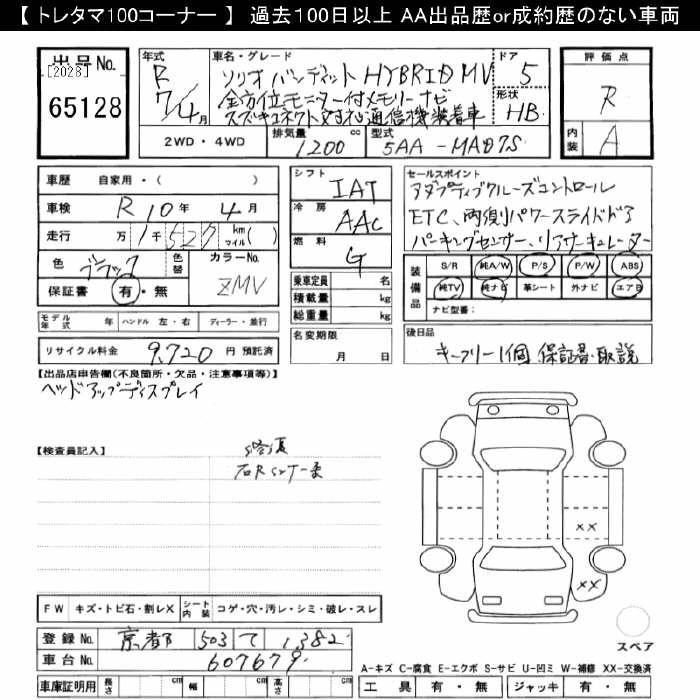 【 トレタマ100コーナー 】 過去100日以上 AA出品歴or成約歴のない車両
出品No.
[2028]
65128
年式
R
7/4月
車名・グレード
ソリオ バンディット HYBRID MV
全方位モニター付メモリーナビ
スズキコネクト対応通信機装着車
ドア
5
形状
HB
評価点
R
内装
A
2WD・4WD
排気量
1200
型式
5AA-MAD7S
車歴 自家用・( )
車検 R 10年 4月
走行 万 1千 527 km マイル( )
色 ブラック 色替 カラーNo. ZMV
保証書 有・無
モデル年式 年 ハンドル 左・右 ディーラー・並行
リサイクル料金 9,720 円 預託済
シフト IAT
冷房 AAC
燃料 G
乗車定員 名
積載量 kg
総重量 kg
名変期限
月 日
セールスポイント
アダプティブクルーズコントロール
ETC、両側パワースライドドア
パーキングセンサー、リアサーキュレーター
装備品
S/R 純A/W P/S P/W ABS
純TV 純ナビ 革シート 外ナビ エアB
ナビ型番:
後日品
キーフリー1個 保証書・取説
【出品店申告欄(不良箇所・欠品・注意事項等)】
ヘッドアップディスプレイ
【検査員記入】
修復
××
××
スペア
FW キズ・トビ石・割レX シート内装 コゲ・穴・汚レ・シミ・破レ・スレ
登録No. 京都 503 て 1382
車台No. 607679
車庫証明用 長さ cm 幅 cm 高さ cm
A-キズ C-腐食 E-エクボ S-サビ U-凹ミ W-補修 XX-交換済
工具 有・無 ジャッキ 有・無